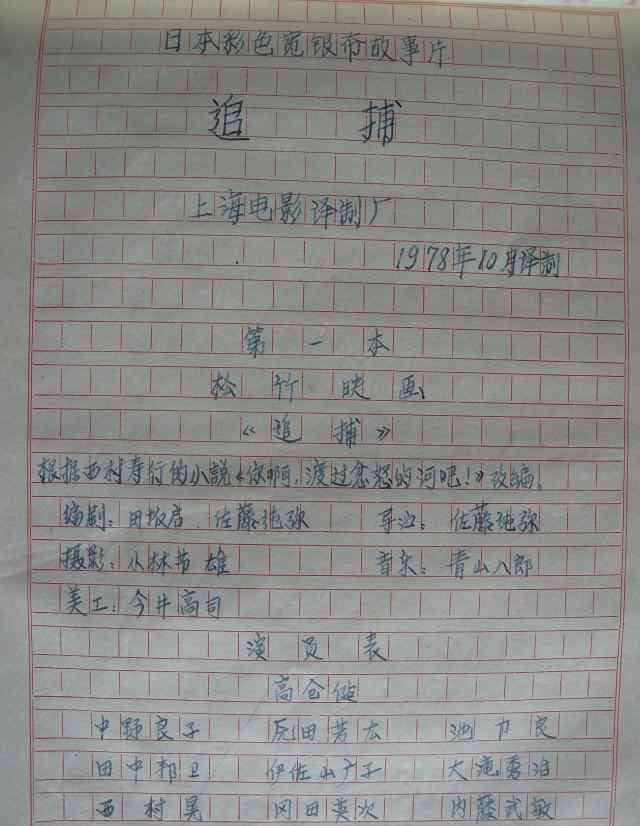 日本彩色宽银布故事片
追 捕
上海电影译制厂
1978年10月译制
第 一 本
松 竹 映 画
《追 捕》
根据西村寿行的小説《你啊,渡过忿怒的河吧!》改编。
编剧:田坂启、佐藤纯弥 导演:佐藤纯弥
摄影:小林节雄 音乐:青山八郎
美工:今井高司
演 员 表
高仓健
中野良子 原田芳左 池 力 良
田中邦卫 伊佐山广子 大滝秀治
西 村 晃 冈田英次 内藤武敏